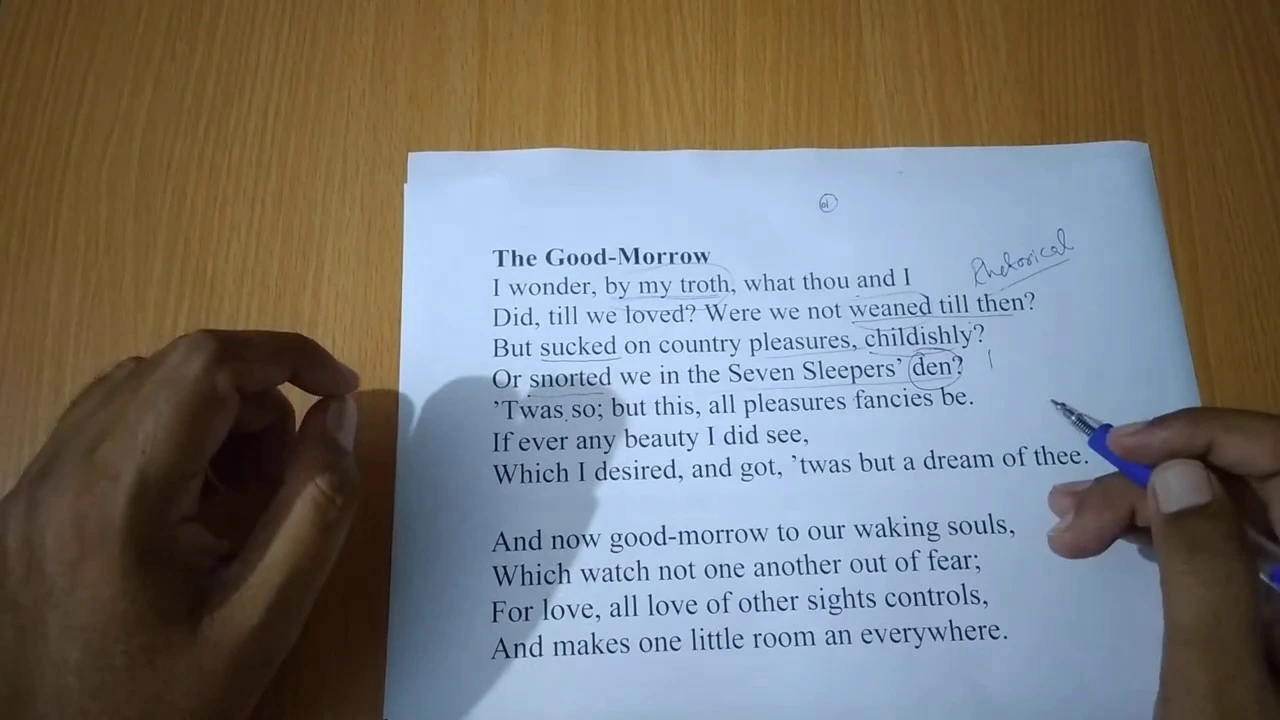 01
The Good-Morrow
I wonder, by my troth, what thou and I
Rhetorical
Did, till we loved? Were we not weaned till then?
But sucked on country pleasures, childishly?
Or snorted we in the Seven Sleepers’ den?
’Twas so; but this, all pleasures fancies be.
If ever any beauty I did see,
Which I desired, and got, ’twas but a dream of thee.
And now good-morrow to our waking souls,
Which watch not one another out of fear;
For love, all love of other sights controls,
And makes one little room an everywhere.